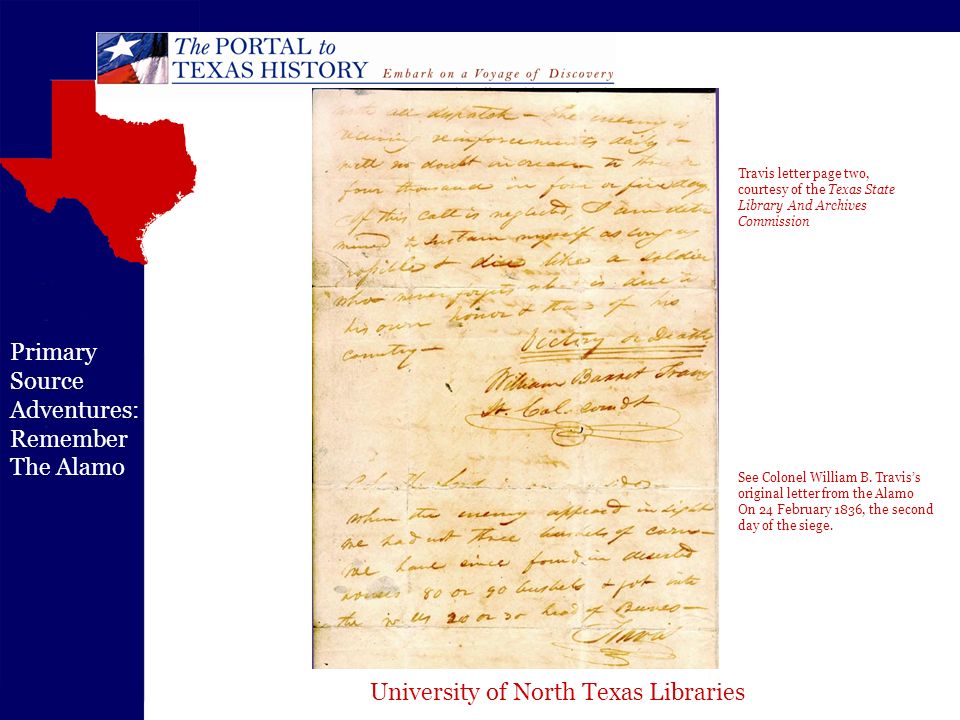 The PORTAL to
TEXAS HISTORY
Embark on a Voyage of Discovery
with all dispatch — The enemy is
receiving reinforcements daily &
will no doubt increase to three or
four thousand in four or five days.
If this call is neglected, I am deter
mined to sustain myself as long as
possible & die like a soldier
who never forgets what is due to
his own honor & that of his
country —
Victory or Death
William Barret Travis
Lt. Col. comdt
P.S. The Lord is on our side
when the enemy appeared in sight
we had not three bushels of corn —
we have since found in deserted
houses 80 or 90 bushels & got into
the walls 20 or 30 head of Beeves —
Travis
Travis letter page two,
courtesy of the Texas State
Library And Archives
Commission
See Colonel William B. Travis's
original letter from the Alamo
On 24 February 1836, the second
day of the siege.
Primary
Source
Adventures:
Remember
The Alamo
University of North Texas Libraries